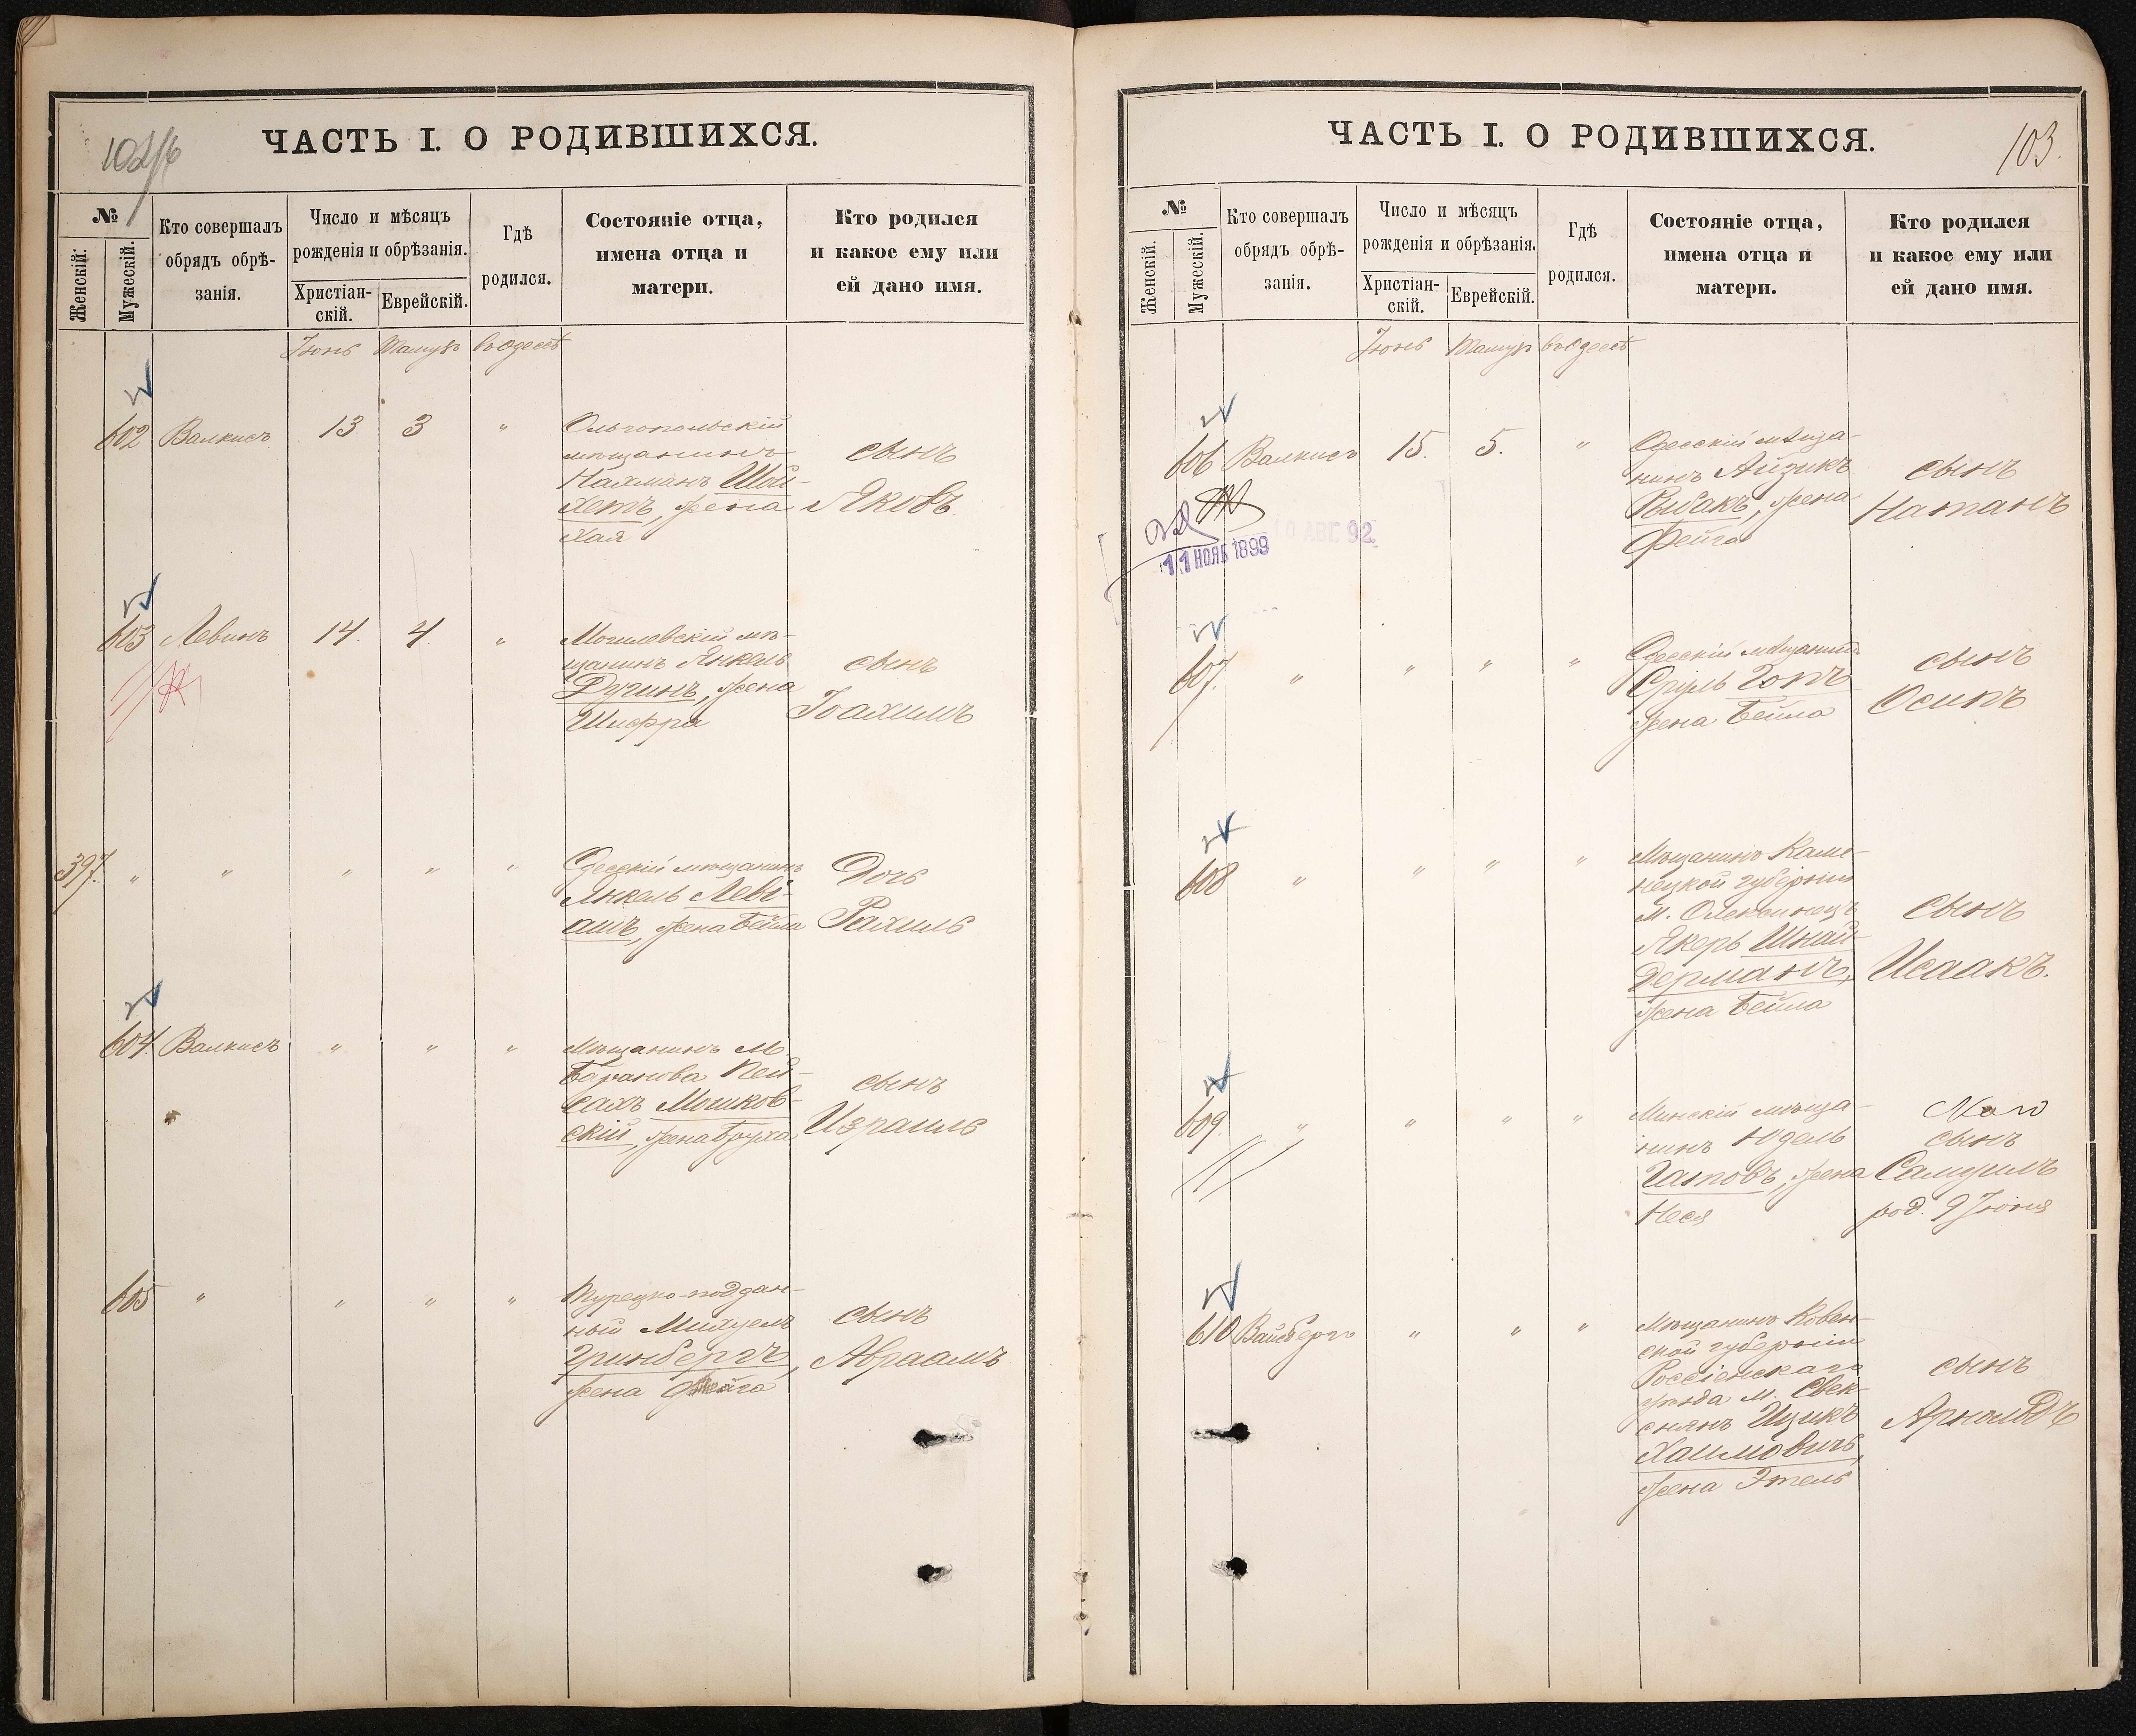 102/б
ЧАСТЬ I. О РОДИВШИХСЯ.
№
Женскій.
Мужескій.
Кто совершалъ
обрядъ обрѣ-
занія.
Число и мѣсяцъ
рожденія и обрѣзанія.
Христіан-
скій.
Еврейскій.
Гдѣ
родился.
Состояніе отца,
имена отца и
матери.
Кто родился
и какое ему или
ей дано имя.
Іюнь Тамузъ въ Одессѣ
602 Валкисъ 13 3 "
Ольгопольскій
мѣщанинъ
Нахманъ Шой-
хетъ, жена
Хая
сынъ
Яковъ.
603 Левинъ 14. 4. "
Могилевскій мѣ-
щанинъ Янкель
Ручинъ, жена
Шифра
сынъ
Іоахимъ
397. " " " " "
Одесскій мѣщанинъ
Янкель Леві-
ашъ, жена Бейла
Дочь
Рахиль
604. Валкисъ " " "
Мѣщанинъ м.
Баранова Пей-
сахъ Мошков-
скій, жена Бруха
сынъ
Израиль
605 " " " "
Турецко-поддан-
ный Михуель
Гринбергъ,
жена
сынъ
Авраамъ
103.
ЧАСТЬ I. О РОДИВШИХСЯ.
№
Женскій.
Мужескій.
Кто совершалъ
обрядъ обрѣ-
занія.
Число и мѣсяцъ
рожденія и обрѣзанія.
Христіан-
скій.
Еврейскій.
Гдѣ
родился.
Состояніе отца,
имена отца и
матери.
Кто родился
и какое ему или
ей дано имя.
Іюнь Тамузъ въ Одессѣ
606 Валкисъ 15. 5. "
Одесскій мѣща-
нинъ Айзикъ
Рыбакъ, жена
Фейга
сынъ
Натанъ
0 АВГ. 92.
11 НОЯБ 1899
607. " " " "
Одесскій мѣщанинъ
Сруль Гопъ
жена Бейла
сынъ
Осипъ
608 " " " "
Мѣщанинъ Каме-
нецкой губерніи
м. Олексинецъ
Якеръ Шнай-
дерманъ,
жена Бейла
сынъ
Исаакъ.
609. " " " "
Минскій мѣща-
нинъ Юдель
Гатовъ, жена
Неся
сынъ
Самуилъ
род. 9 Іюня
610 Вайсбергъ " " "
Мѣщанинъ Ковен-
ской губерніи
Россіенскаго
уѣзда м. Свек-
снянъ Ицикъ
Хаимовичъ,
жена Этель
сынъ
Арнольдъ